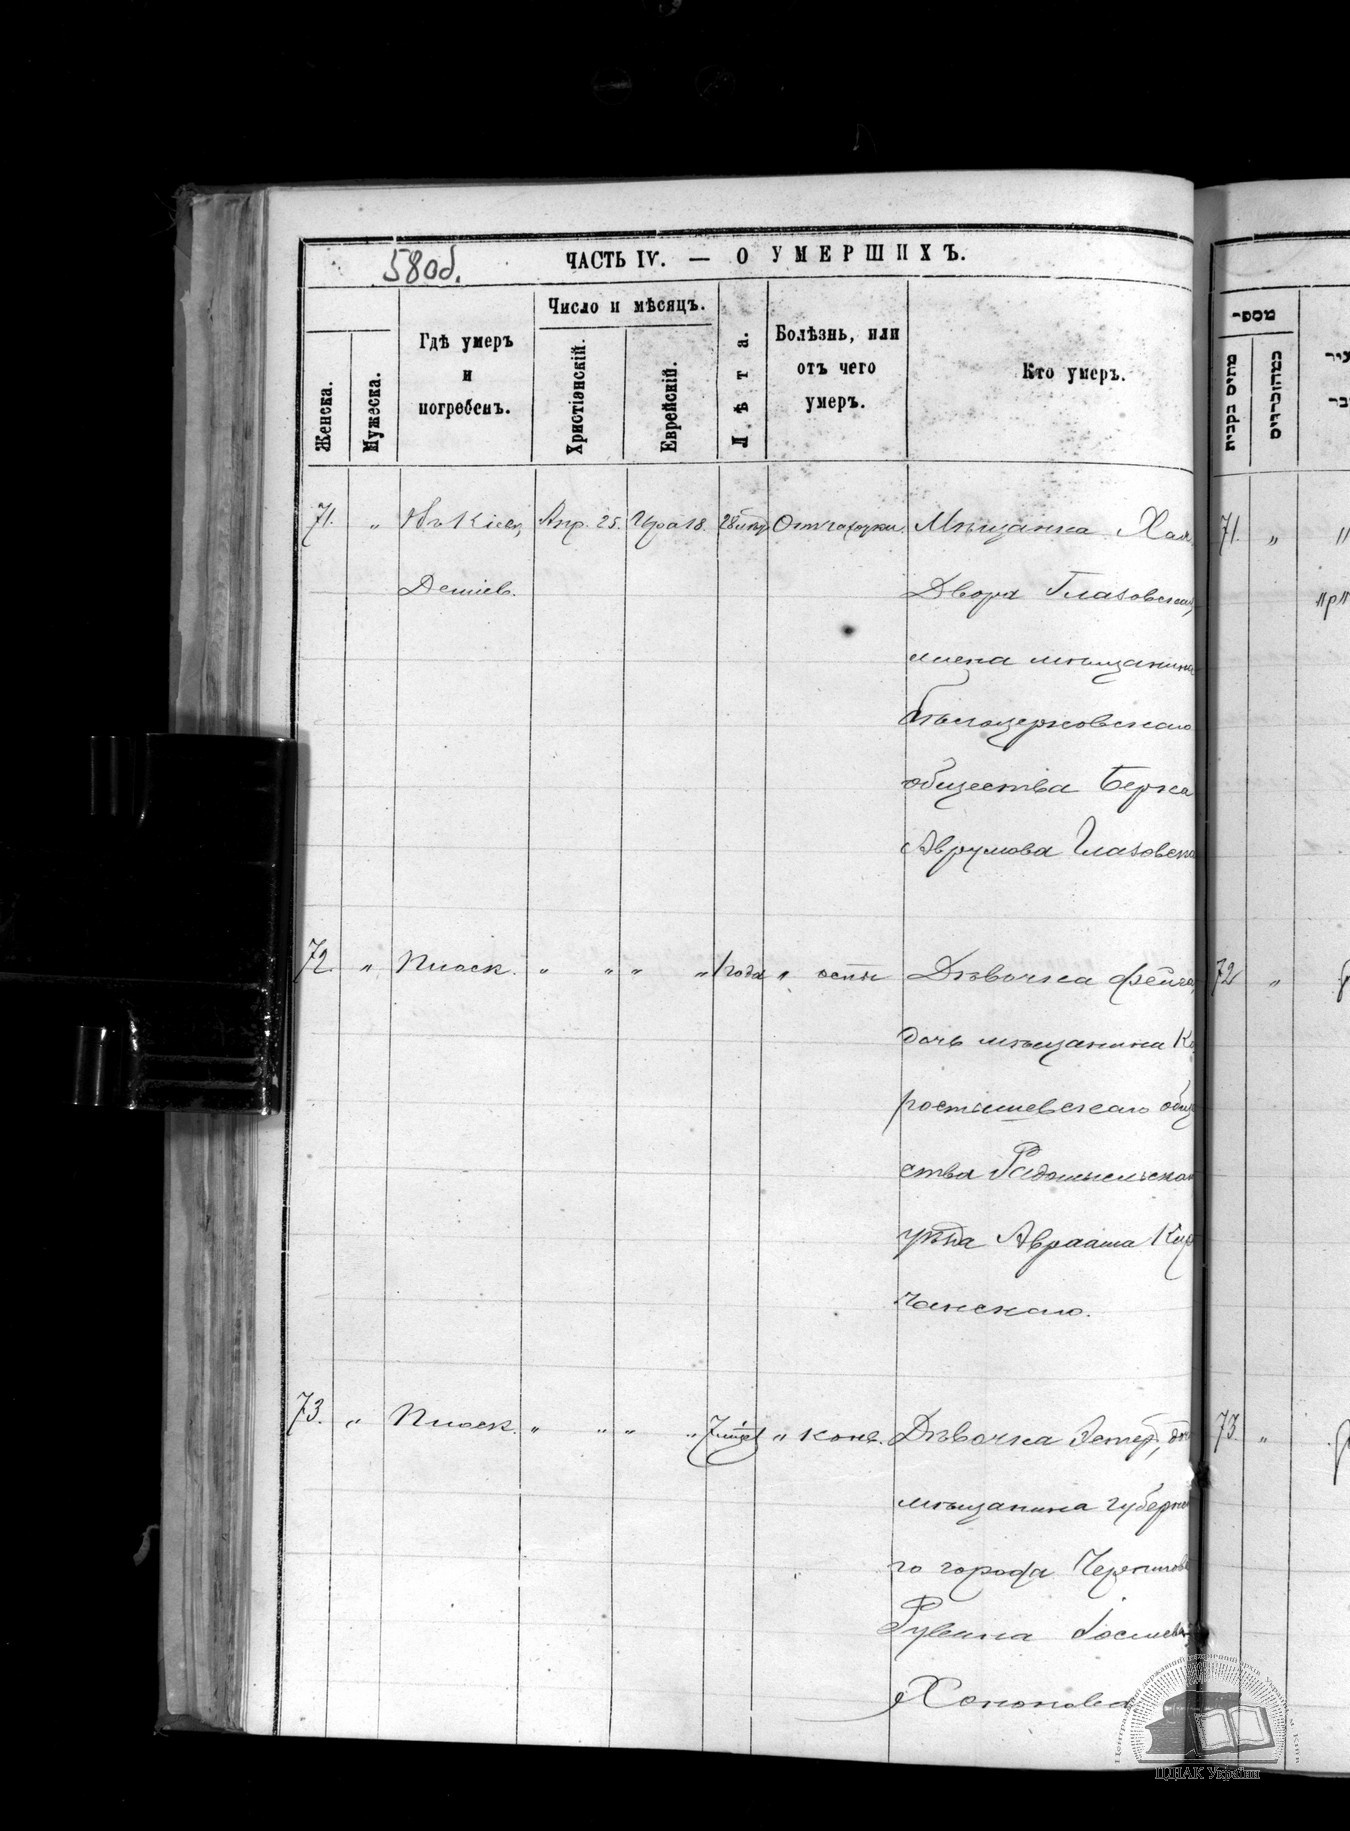 580б.
ЧАСТЬ IV. — О УМЕРШИХЪ.
Женска.
Мужеска.
Гдѣ умеръ
и
погребенъ.
Число и мѣсяцъ.
Христіанскій.
Еврейскій.
Лѣта.
Болѣзнь, или
отъ чего
умеръ.
Кто умеръ.
מספר
71. " Апр. 25. Ира 18. 28 Отъ чахотки Мѣщанка Хая
Двора Глазовская
мѣщанина
Бѣлоцерковскаго
общества Берка
Аврумова Глазовска
72. " Плоск. " " " " 1 года " оспы Дѣвочка Фейга,
дочь мѣщанина Ко
ростышевскаго обще
ства Радомысльскаго
уѣзда Авраама
чанскаго.
73. " Плоск. " " " " 7 " Дѣвочка Эстер, доч
мѣщанина губернска
го города Чернигова
Рувина
Хононова
71. "
72 "
73. "
ЦДІАК України